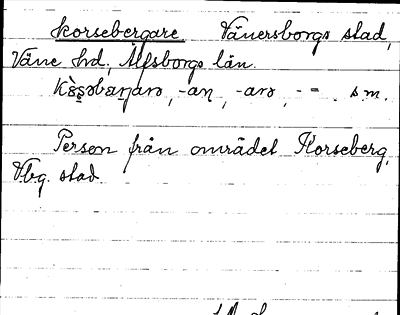 korsebergare Vänersborgs stad,
Väne hd, Älfsborgs län.
-an, -arə, - = . s.m.
Person från området Korseberg,
Vbg. stad.